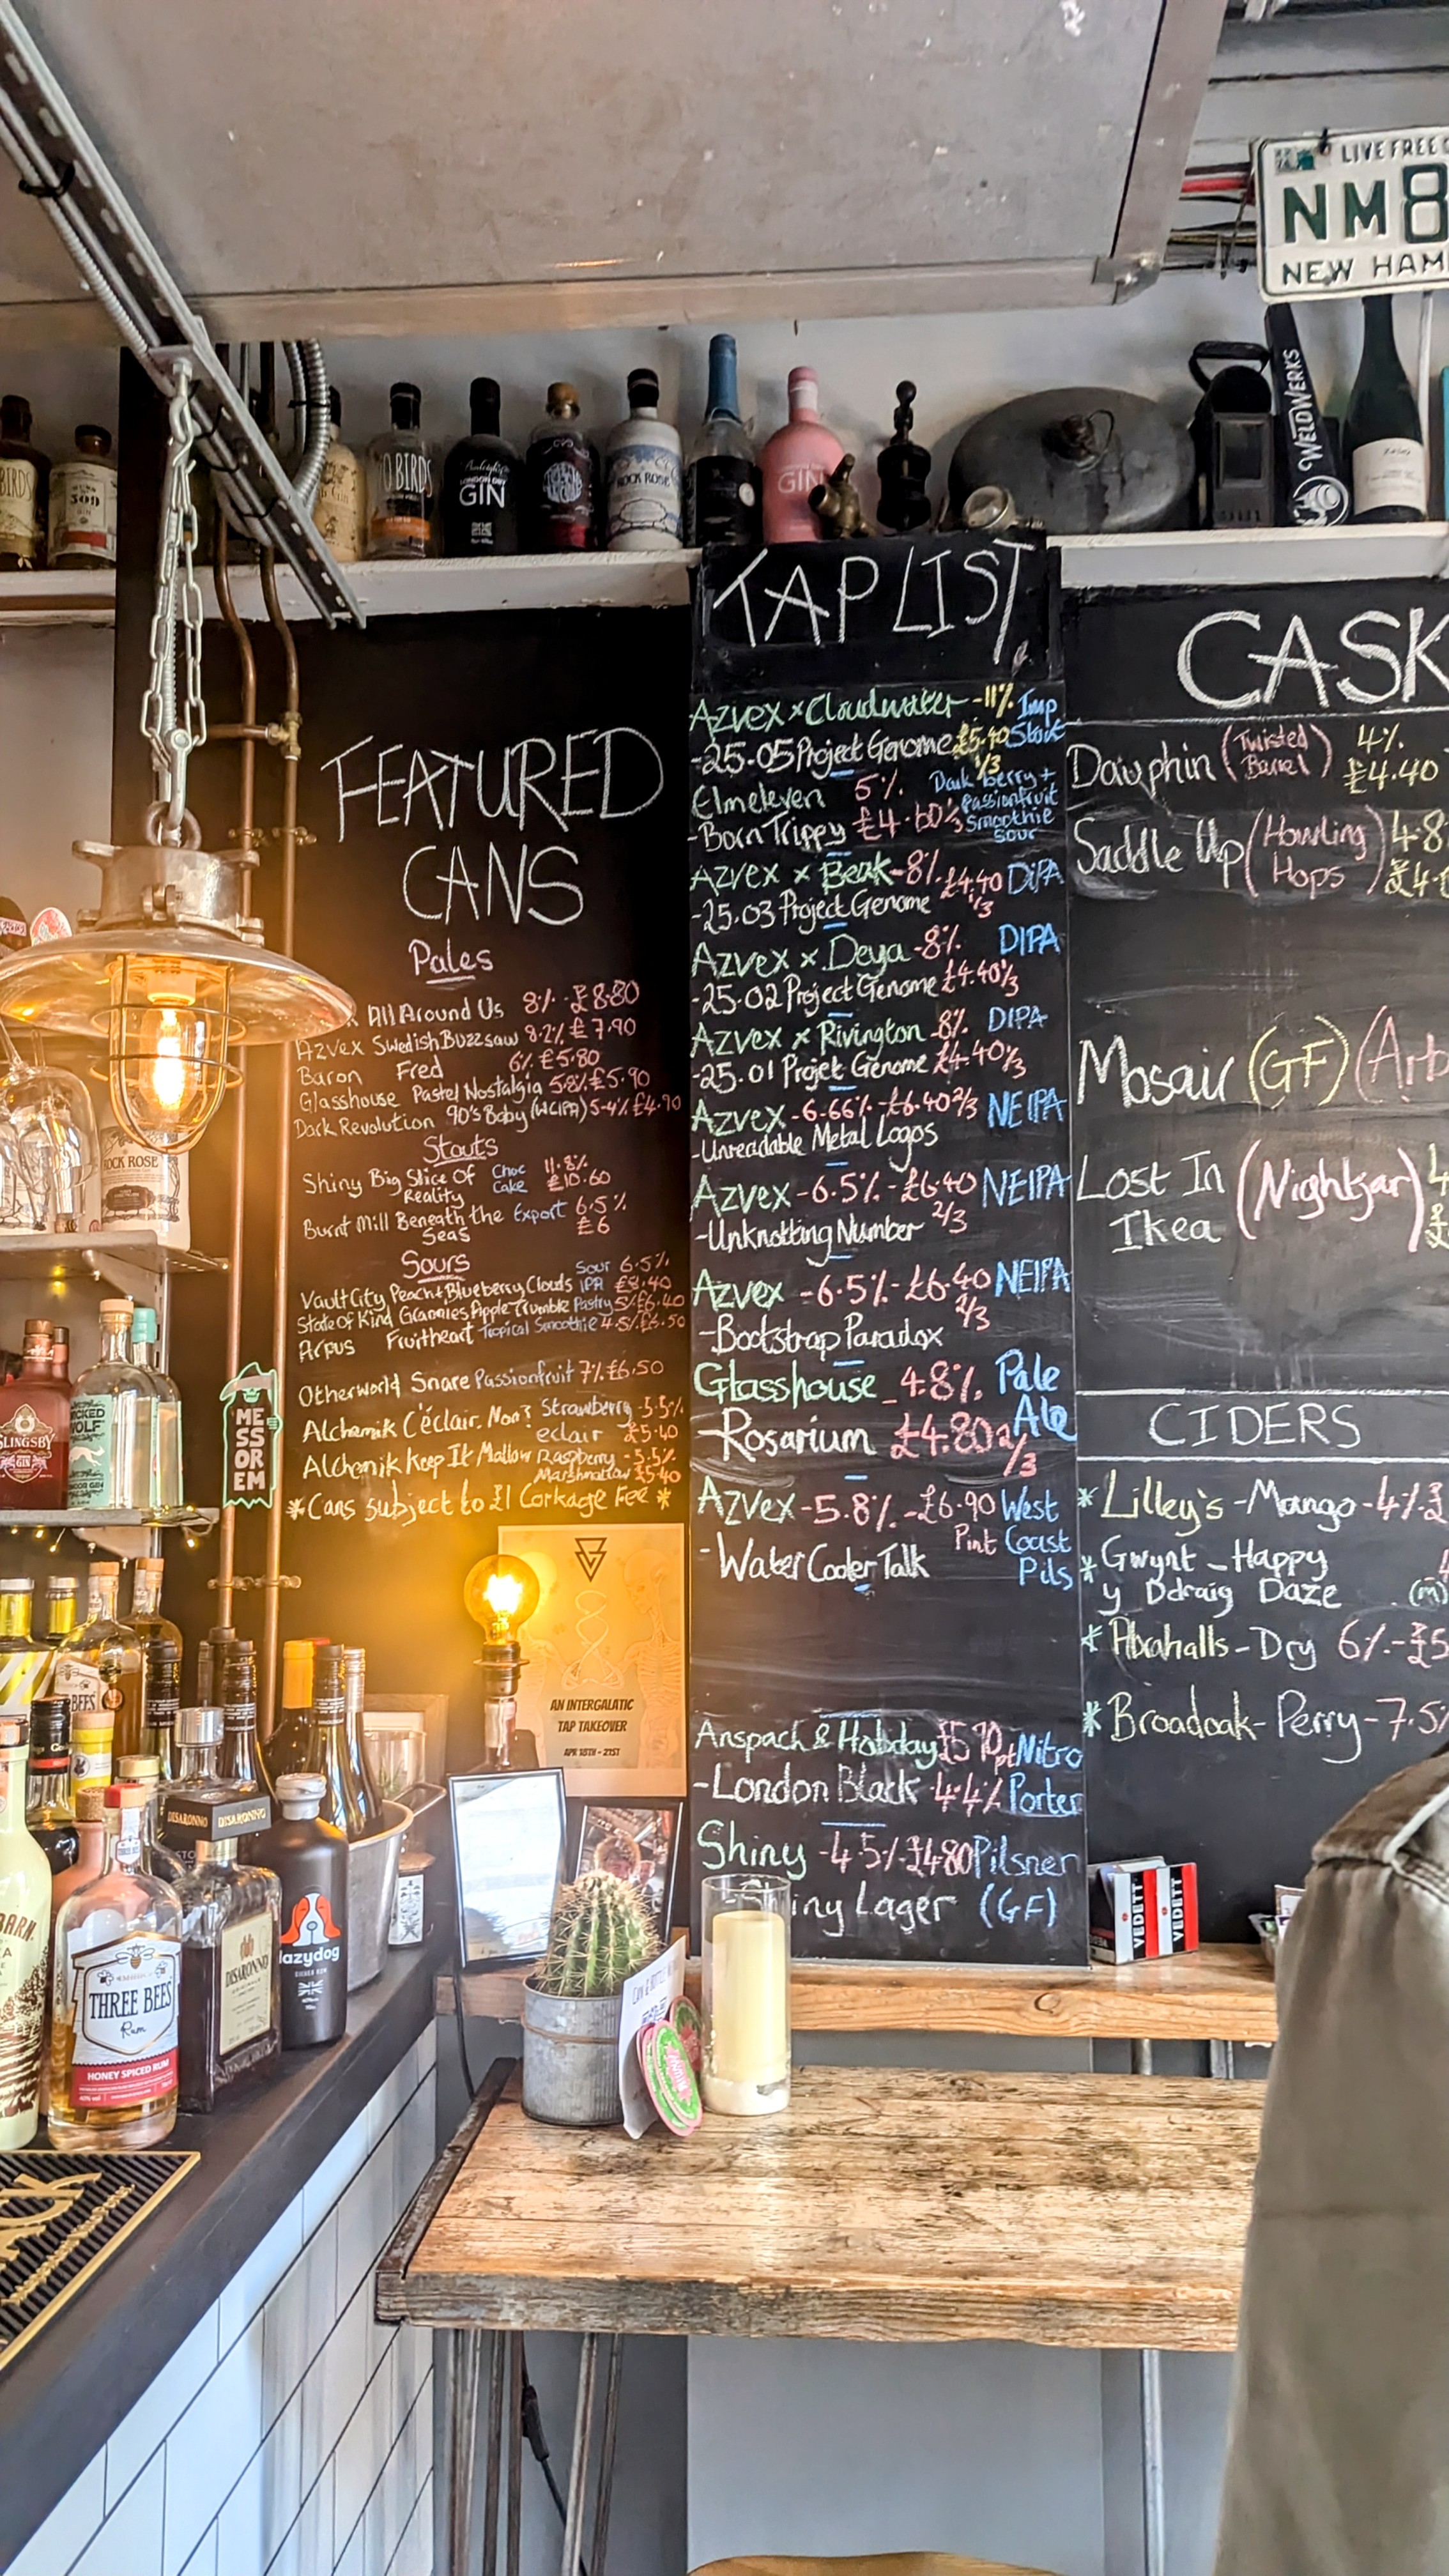 LIVE FREE O
NM8
NEW HAM
WELDWERKS
BIRDS
509
GIN
O BIRDS
LONDON DRY
GIN
ROCK ROSE
GIN
TAP LIST
Azvex x Cloudwater -11% Imp
-25.05 Project Genome £5.40 Stout
1/3
Elmeleven 5% Dark berry +
-Born Trippy £4.60 ⅓ Passionfruit
Smoothie
Sour
Azvex x Beak -8% £4.40 DIPA
-25.03 Project Genome 1/3
Azvex x Deya -8% DIPA
-25.02 Project Genome £4.40 ⅓
Azvex x Rivington -8% DIPA
-25.01 Projet Genome £4.40 ⅓
Azvex -6.66% -£6.40 ⅔ NEIPA
-Unreadable Metal Logos
Azvex -6.5% -£6.40 NEIPA
-Unknotting Number 2/3
Azvex -6.5% -£6.40 NEIPA
-Bootstrap Paradox 2/3
Glasshouse -4.8% Pale
-Rosarium £4.80 2/3 Ale
Azvex -5.8% -£6.90 West
Pint Coast
-Water Cooler Talk Pils
Anspach & Hobday £5.70 pt Nitro
-London Black 4.4% Porter
Shiny -4.5% £4.80 Pilsner
iny Lager (GF)
FEATURED
CANS
Pales
All Around Us 8% £8.80
Azvex Swedish Buzzsaw 8.2% £7.90
Baron Fred 6% £5.80
Glasshouse Pastel Nostalgia 5.8% £5.90
Dark Revolution 90's Baby (WCIPA) 5.4% £4.90
Stouts
Shiny Big Slice Of Choc 11.8%
Reality Cake £10.60
Burnt Mill Beneath the Export 6.5%
Seas £6
Sours
Vault City Peach + Blueberry Clouds Sour IPA 6.5% £8.40
State Of Kind Grannies Apple Crumble Pastry 5% £6.40
Arpus Fruitheart Tropical Smoothie 4.5% £6.50
Otherworld Snare Passionfruit 7% £6.50
Alchemik C'éclair, Non? Strawberry -5.5%
eclair £5.40
Alchemik Keep It Mallow Raspberry -5.5%
Marshmallow £5.40
*Cans subject to £1 Corkage Fee*
CASK
Dauphin (Twisted Barrel) 4%
£4.40
Saddle Up (Howling Hops) 4.8
£4.
Mosaic (GF) (Arb
Lost In (Nightjar) 4
Ikea £
CIDERS
*Lilley's -Mango -4% £
*Gwynt - Happy
y Ddraig Daze (m)
*Abrahalls - Dry 6% -£5
*Broadoak - Perry -7.5%
ROCK ROSE
SLINGSBY
GIN
WICKED
WOLF
ME
SS
OR
EM
AN INTERGALATIC
TAP TAKEOVER
APR 18TH - 21ST
BEES
DISARONNO DISARONNO
DISARONNO
THREE BEES
Rum
HONEY SPICED RUM
lazydog
VEDETT
VEDETT